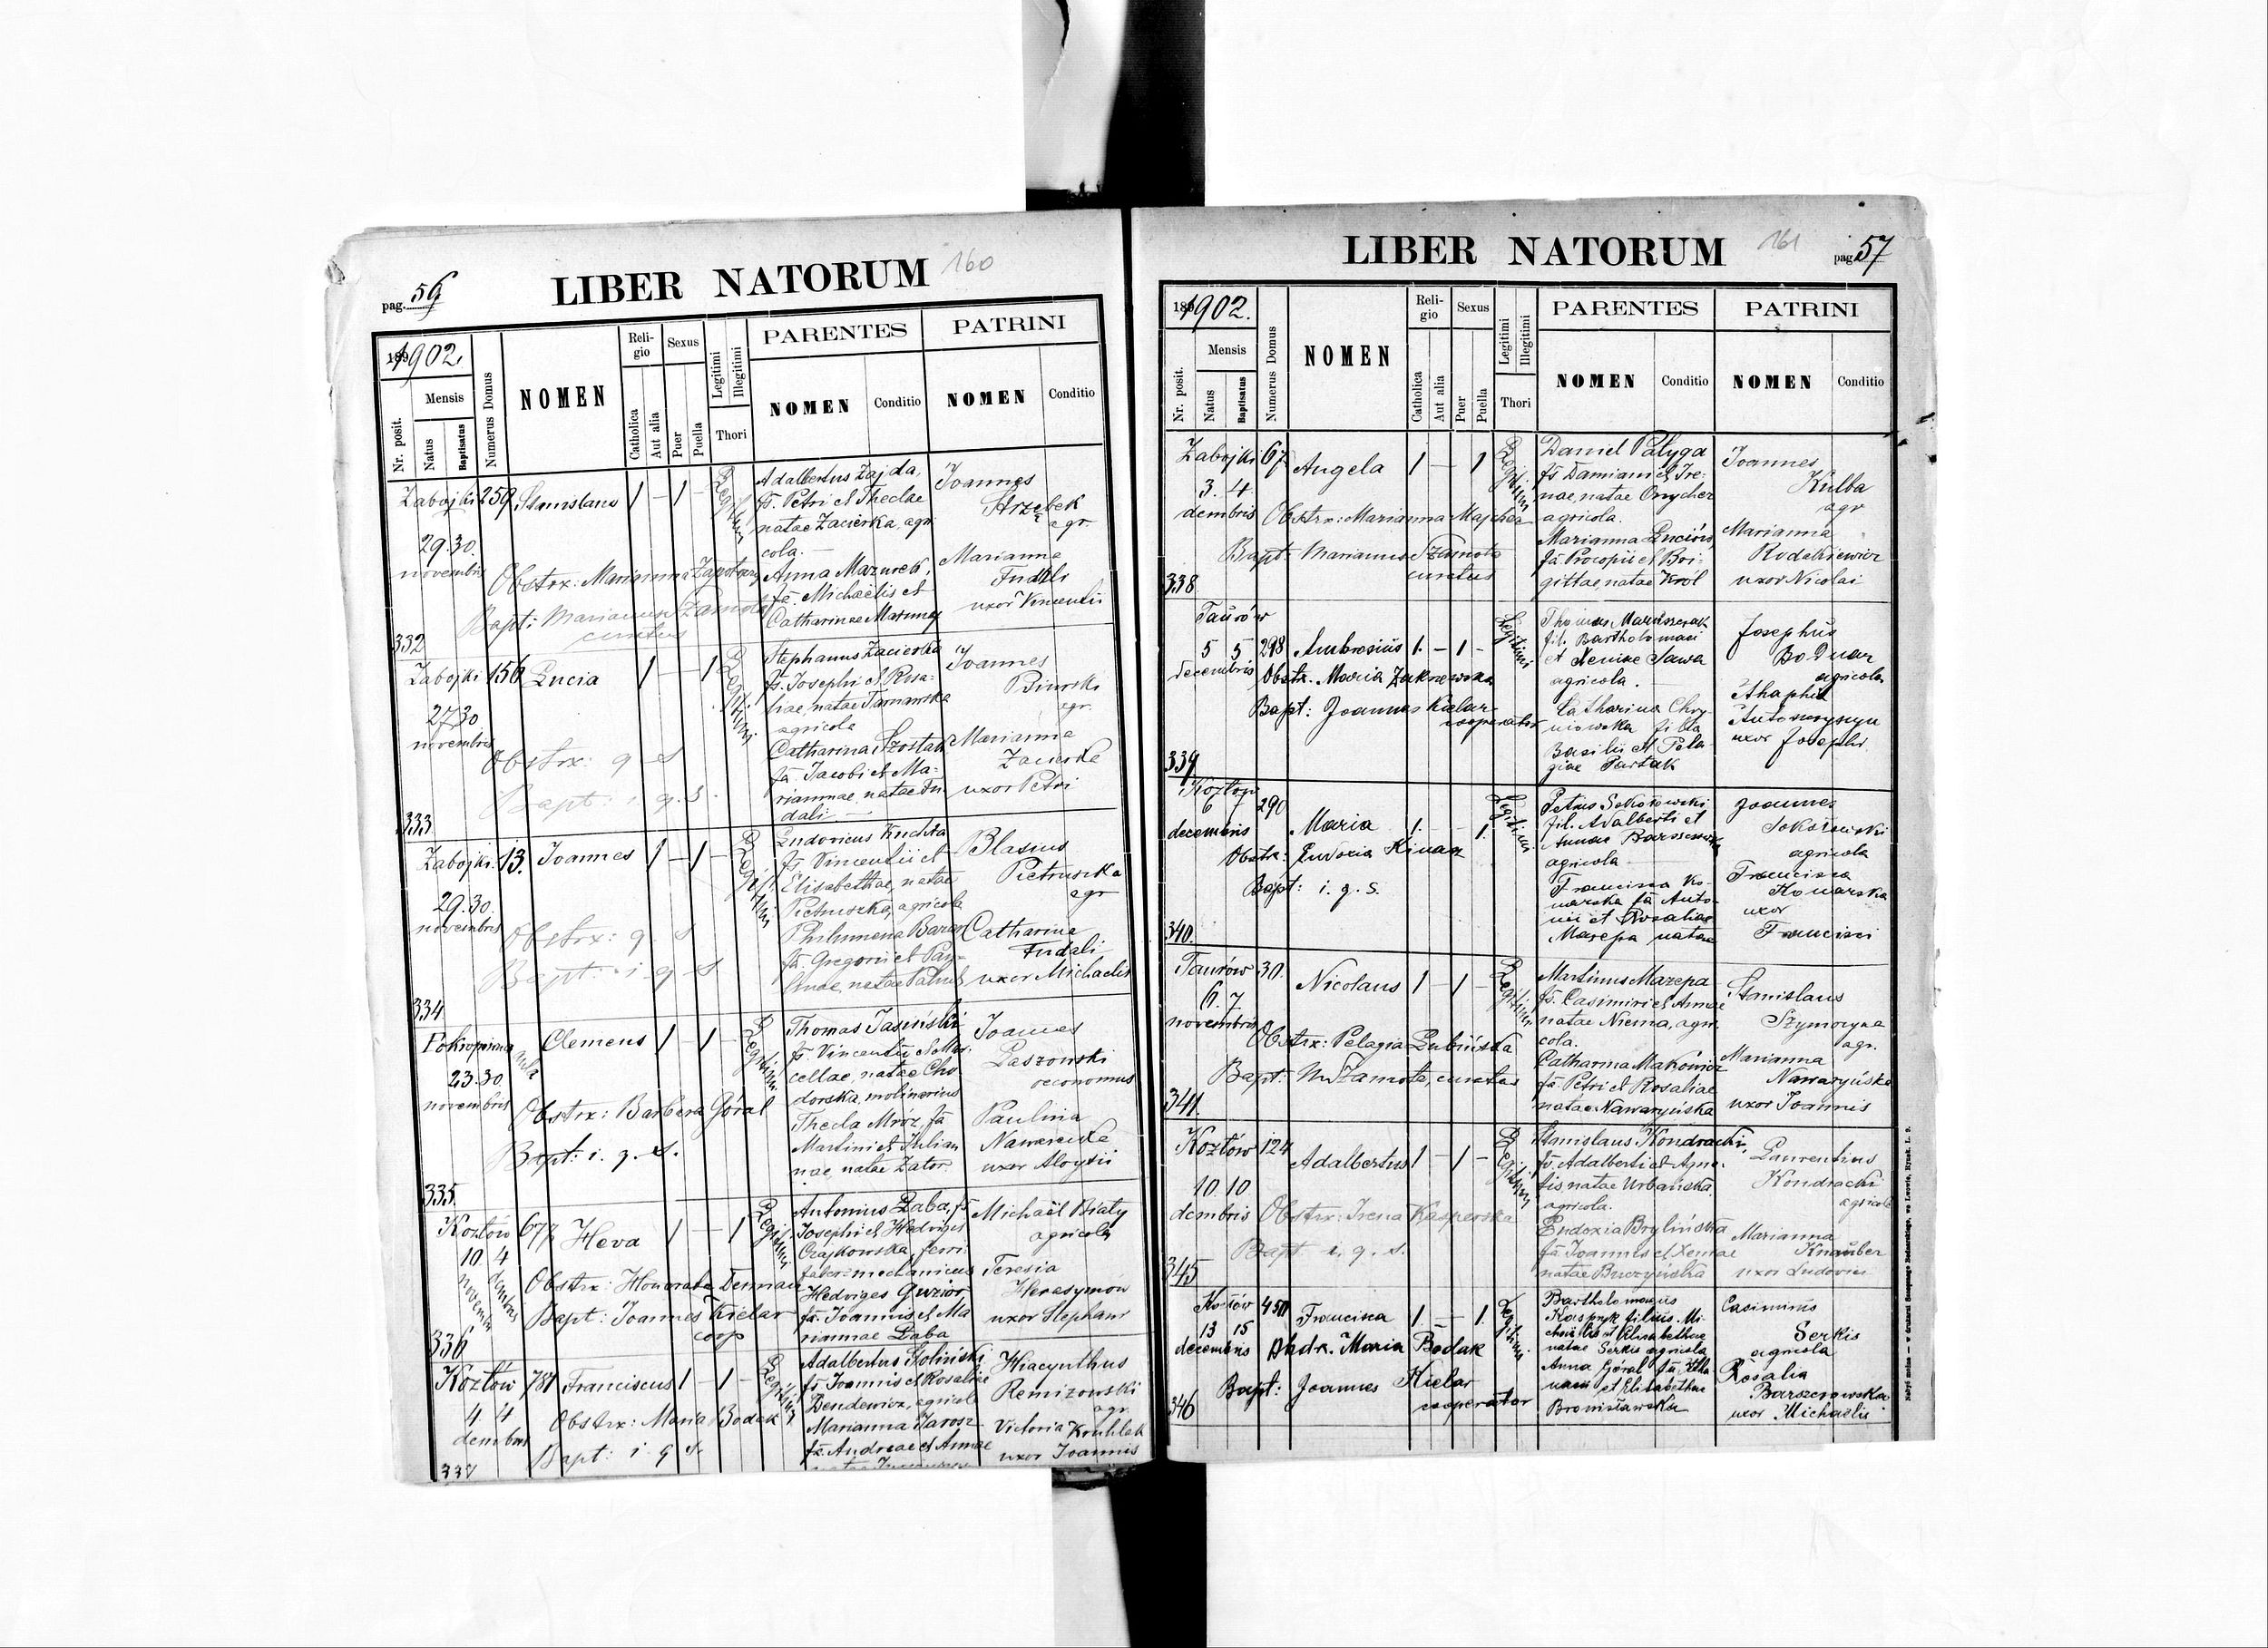 pag. 56
LIBER NATORUM 160
1902.
Nr. posit.
Mensis
Natus
Baptisatus
Numerus Domus
NOMEN
Reli-
gio
Catholica
Aut alia
Sexus
Puer
Puella
Legitimi
Illegitimi
Thori
PARENTES
NOMEN Conditio
PATRINI
NOMEN Conditio
Zabojki 259 Stanislaus 1 — 1 — Legitimi
29. 30.
novembris
Obstrx: Marianna
Bapt: Marianus Szamota
curatus
332
Adalbertus Zajda,
fs. Petri et Theclae
natae Zacierka, agri
cola. —
Anna Mazurek,
fa. Michaëlis et
Catharinae
Joannes
Strzębek
agr.
Marianna
Fudali
uxor Vincentii
Zabojki 156 Lucia 1 — — 1 Legitimi
27 30
novembris
Obstrx: q. s
Bapt: i. q. s.
333
Stephanus Zacierka
fs. Josephi et Rosa-
liae, natae
agricola
Catharina Szostak
fa Jacobi et Ma-
riannae, natae Fu-
dali —
Joannes
Binski
agr.
Marianna
Zacierka
uxor Petri
Zabojki. 13. Joannes 1 — 1 — Legitimi
29. 30.
novembris
Obstrx: q. s
Bapt: i. q. s
334
Ludovicus Kuchta
fs. Vincentii et
Elisabethae, natae
Pietruszka, agricola
Philumena Baran
fa. Gregorii et Pau-
linae, natae
Blasius
Pietruszka
agr
Catharina
Fudali
uxor Michaelis
Pokropiwna Clemens 1 — 1 — Legitimi
23. 30.
novembris
Obstrx: Barbara Góral
Bapt: i. q. s.
335.
Thomas Jasiński
fs. Vincentii et Mar-
cellae, natae Cho-
dorska, molinarius
Thecla Mróz, fa
Martini et Julian
nae, natae Zator.
Joannes
Laszowski
oeconomus
Paulina
uxor Aloysii
Kozłów 677 Heva 1 — — 1 Legitimi
10 4
novembris decembris
Obstrx: Honorata
Bapt: Joannes Kielar
coop
336
Antonius Łaba, fs
Josephi et Hedviges
Czajkowska, ferri
faber-mechanicus
Hedviges Guzior
fa. Joannis et Ma
riannae Łaba
Michaël Biały
agricola
Teresia
Herasymow
uxor Stephani
Kozłów 787 Franciscus 1 — 1 — Legitimi
4 4
dembris
Obstrx: Maria Bodak
Bapt: i. q. s.
337
Adalbertus Goliński
fs Joannis et Rosaliae
Dendewicz, agricola
Marianna Jarosz
fa. Andreae et Annae
Hiacynthus
Remizowski
agr.
Victoria
uxor Joannis
LIBER NATORUM 161
pag. 57
1902.
Nr. posit.
Mensis
Natus
Baptisatus
Numerus Domus
NOMEN
Reli-
gio
Catholica
Aut alia
Sexus
Puer
Puella
Legitimi
Illegitimi
Thori
PARENTES
NOMEN Conditio
PATRINI
NOMEN Conditio
Zabojki 67 Angela 1 — 1 Legitimi
3. 4.
dembris
Obstrx: Marianna
Bapt: Marianus Szamota
curatus
338
Daniel Patyga
fs Damiani et Ire-
nae, natae Onycher
agricola.
Marianna
fa Procopii et Bri-
gittae, natae Król
Joannes
Kulba
agr
Marianna
Rudakiewicz
uxor Nicolai
Taurów
5 5 298 Ambrosius 1. — 1 — Legitimi
decembris Obstr. Maria Zakrzewska
Bapt: Joannes Kielar
cooperator
339
Thomas
fil. Bartholomaei
et Xeniae Sawa
agricola. —
Catharina Chry-
niowska filia
Basilii et Pela-
giae Partak
Josephus
Bodnar
agricola
uxor Josephi.
Kozłów 290
6 7
decembris Maria 1. — — 1. Legitimi
Obstr: Eudoxia
Bapt: i. q. s.
340.
Petrus Sokołowski
fil. Adalberti et
Annae
agricola
Francisca Ko-
narska fa Anto-
nii et Rosaliae
Mazepa natae
Joannes
Sokołowski
agricola
Francisca
Konarska
uxor
Francisci
Taurów 30. Nicolaus 1 — 1 — Legitimi
6. 7.
novembris
Obstrx: Pelagia Lubińska
Bapt: M Szamota, curatus
341.
Martinus Mazepa
fs. Casimiri et Annae
natae Niema, agri-
cola.
Catharina Makówicz
fa. Petri et Rosaliae
natae Nawaryńska
Stanislaus
agr.
Marianna
Nawaryńska
uxor Joannis
Kozłów 124 Adalbertus 1 — 1 — Legitimi
10. 10
dembris Obstrx: Irena Kasperska
Bapt i. q. s.
345
Stanislaus Kondracki,
fs. Adalberti et Agne-
tis, natae Urbańska,
agricola.
Eudoxia Brylińska
fa Joannis et Xeniae
natae Buczyńska
Laurentius
Kondracki
agricola
Marianna
Knauber
uxor Ludovici
Kozłów 450 Francisca 1 — — 1. Legitimi
13 15
decembris Obstr. Maria Bodak
Bapt: Joannes Kielar
cooperator
346
Bartholomaeus
filius Mi-
chaëlis et Elisabethae
natae Serkis agricola
Anna Góral fa.
et Elisabethae
Bronisławska
Casimirus
Serkis
agricola
Rosalia
Barszczowska
uxor Michaëlis